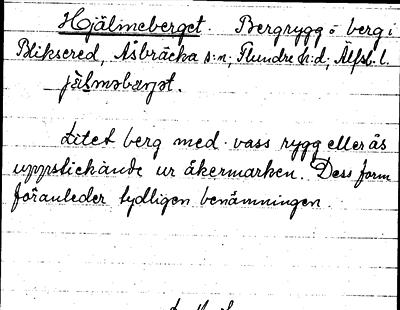 Hjälmeberget. Bergrygg o berg i
Bliksered, Åsbräcka s:n, Flundre h:d, Älfsb. l.
jälməbærjət.
Litet berg med vass rygg eller ås
uppstickande ur åkermarken. Dess form
föranleder tydligen benämningen.